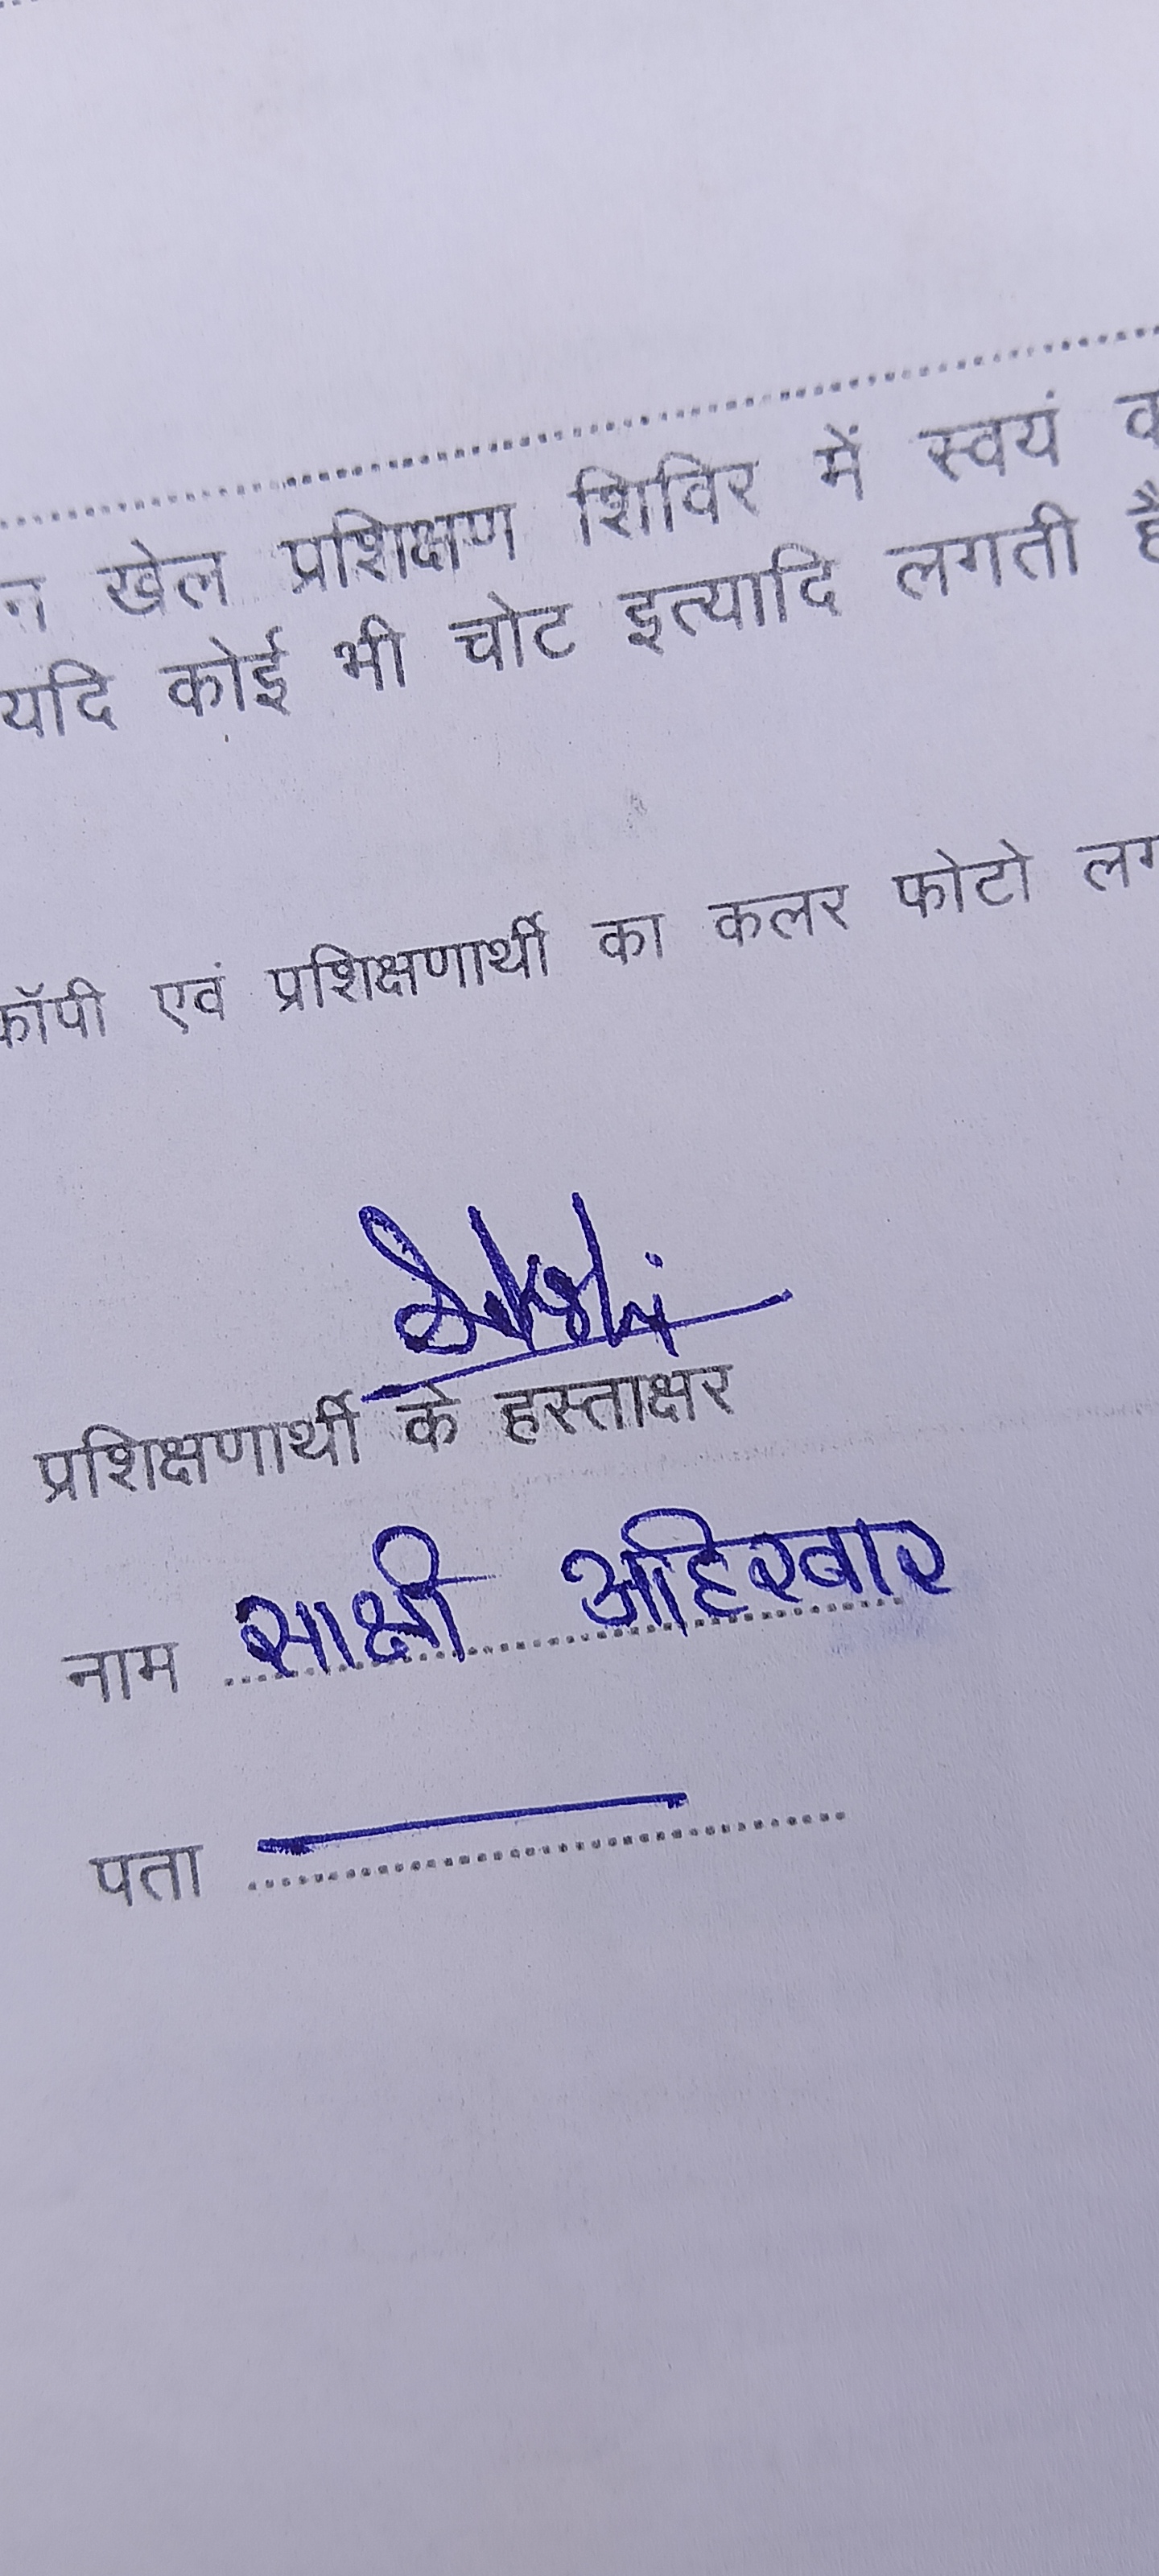 खेल प्रशिक्षण शिविर में स्वयं
यदि कोई भी चोट इत्यादि लगती है
कॉपी एवं प्रशिक्षणार्थी का कलर फोटो
Sakshi
प्रशिक्षणार्थी के हस्ताक्षर
नाम साक्षी अहिरवार
पता